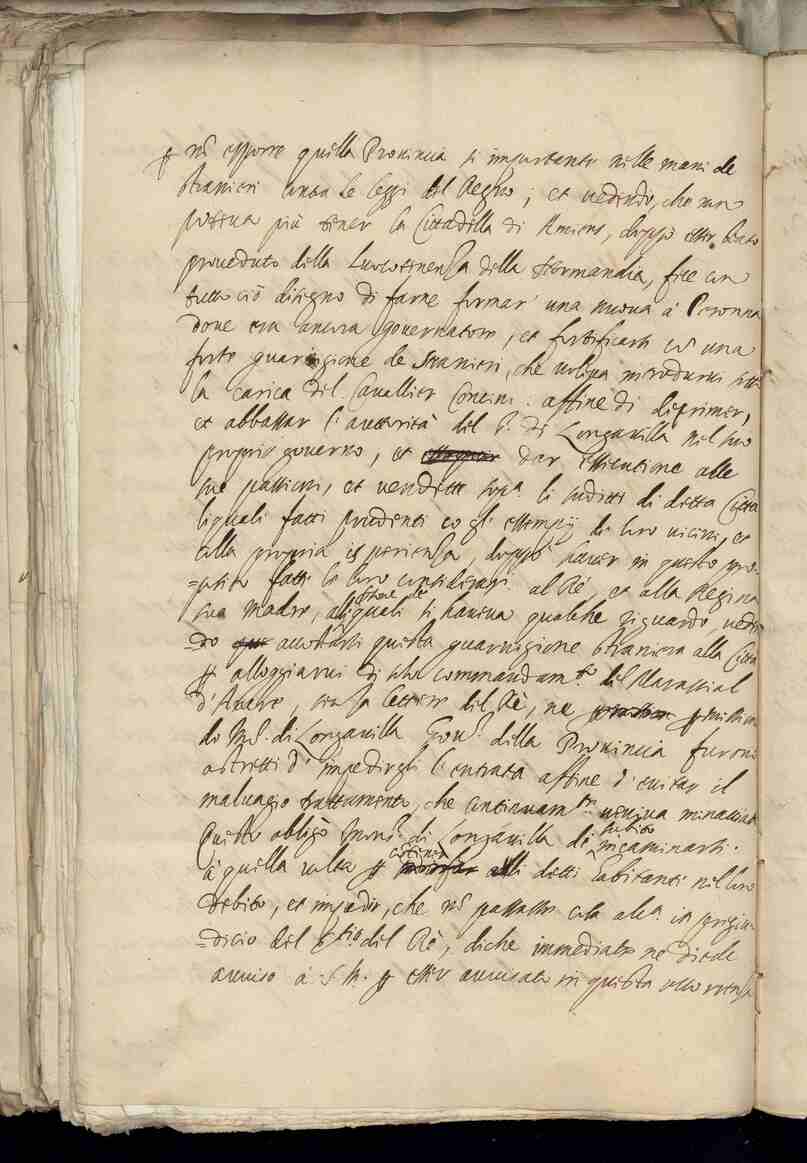 ꝑ nõ esporre quella Prouincia si importante nelle mani de
stranieri contra le leggi del Regno; et uedendo, che non
poteua più tener la Cittadella di Amiens, doppò esser stato
proueduto della Luocotenensa della Normandia, fece con
tutto ciò disegno di farne formar' una nuoua à Peronna
doue era ancora gouernatore, et fortificarsi cõ una
forte guarnigione de stranieri, che uoleua introdurui sotto
la carica del Cauallier Concini. affine di deprimer,
et abbassar l'auttorità del S.r di Longauilla nel suo
proprio gouerno, et dar essecutione alle
sue passioni, et uendette sop.a li sudditi di detta Città
liquali fatti prudenti cõ gl'essempij de loro uicini, et
dalla propria isperienza, doppò hauer in questo pro-
=
fatte le loro al Rè, et alla Regina
sua madre, alliquali si haueua qualche riguardo, ueden
=do accostarsi questa guarnigione straniera alla Città
ꝑ alloggiarui di solo commandam.to del Marascial
d'Ancre, senza lettere del Rè, ne ꝑmissione
di M.r di Longauilla Gou.r della Prouincia furono
astretti d'impedirgli l'entrata affine d'euitar il
maluagio trattamento, che continuam.te ueniua minacciato
Questo obligò Mons.r di Longauilla di subito incaminarsi
à quella uolta ꝑ contener li detti habitanti nel loro
debito, et impedir, che nõ passasse cosa alc.a in pregiu-
=dicio del S.tio del Rè, diche immediate ne diede
auuiso à S. M. ꝑ esser auuisato in questa